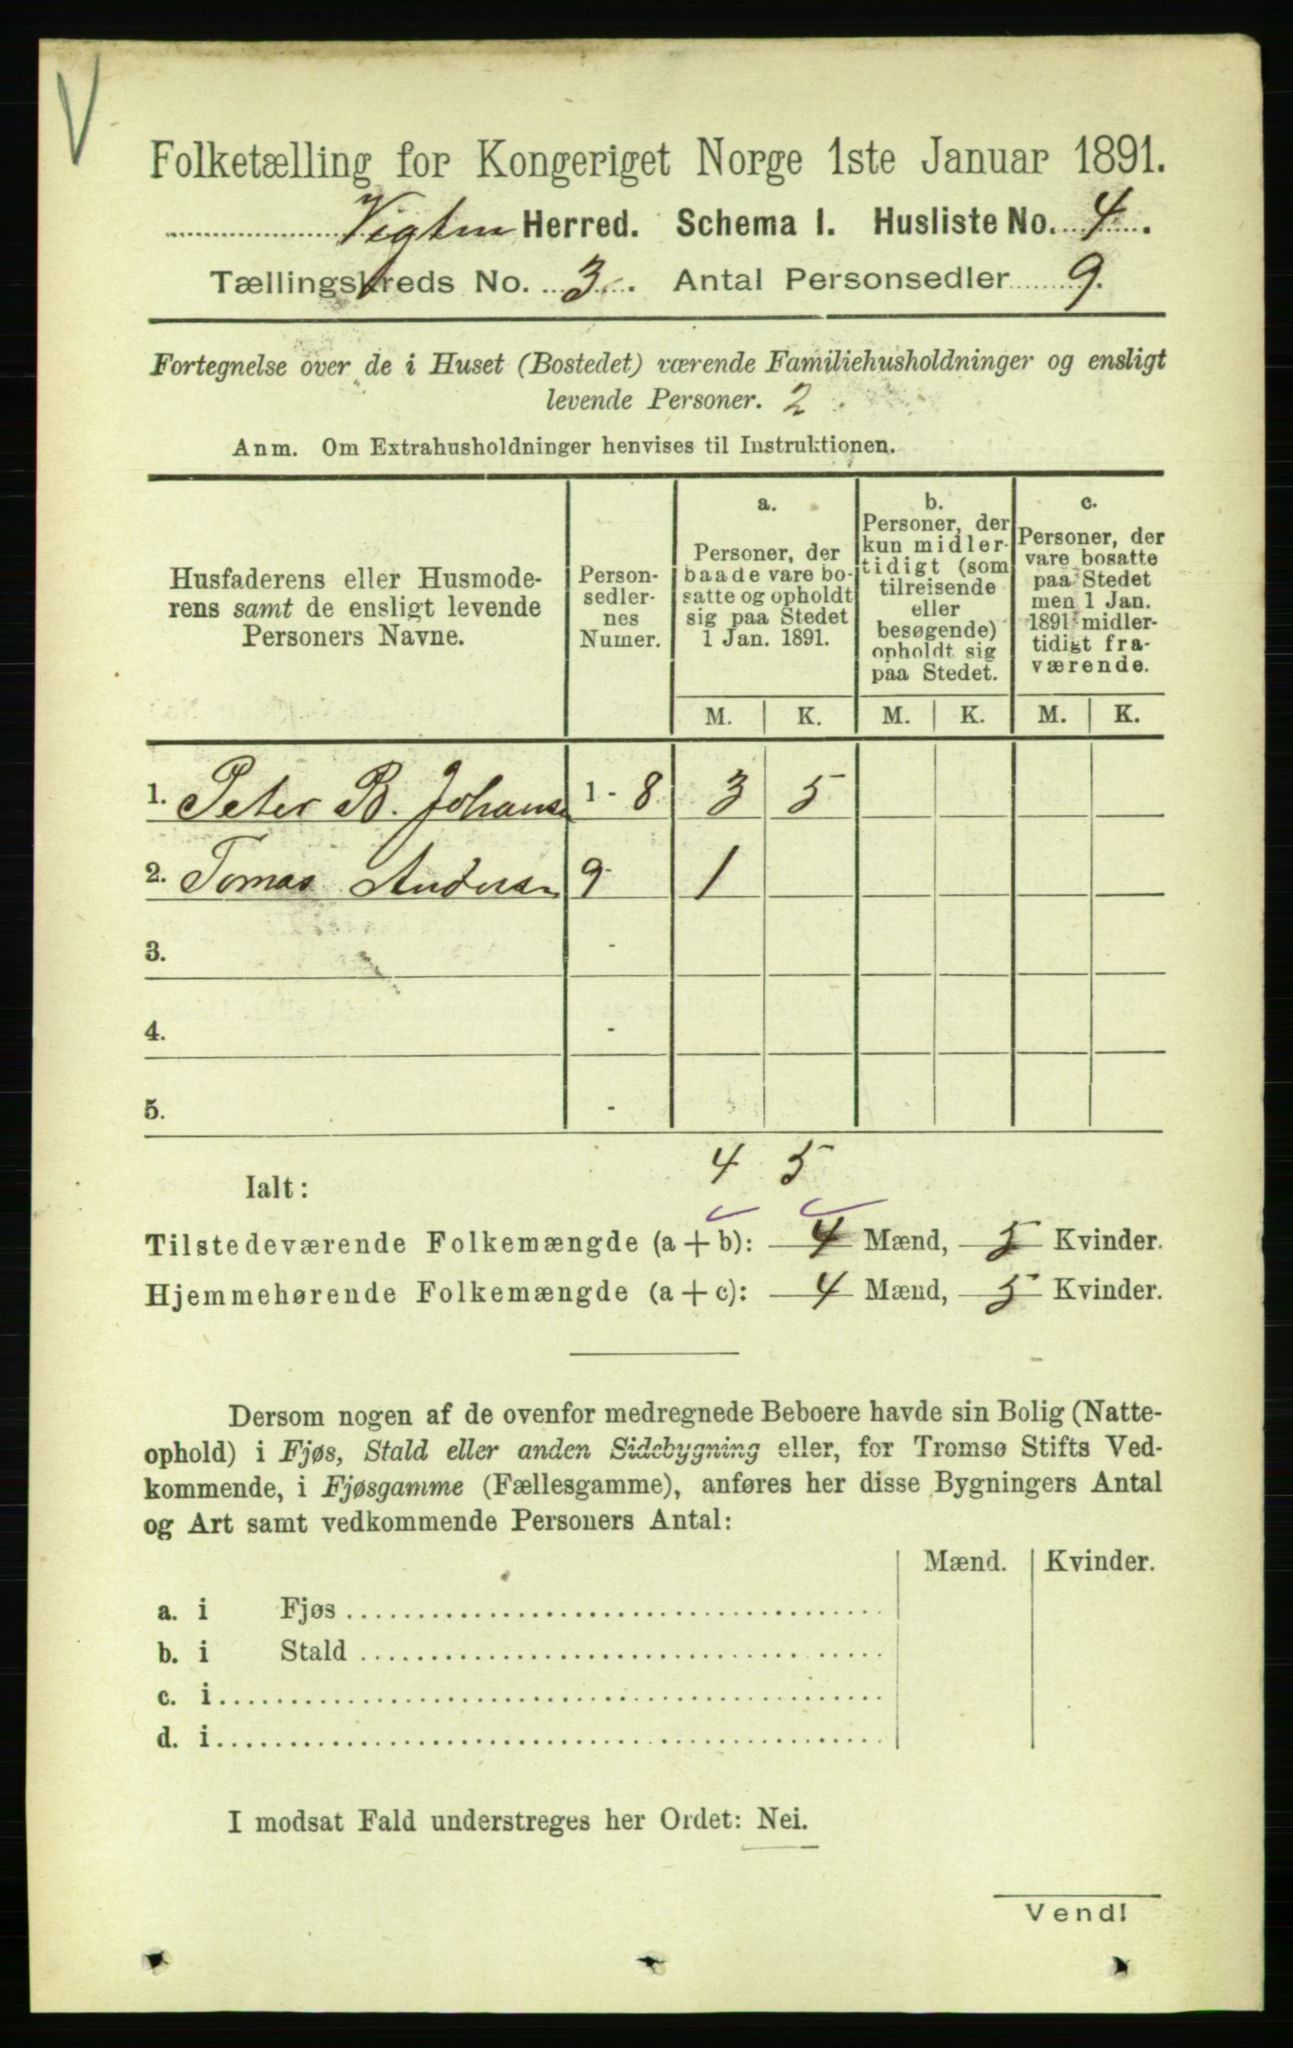 V
Folketælling for Kongeriget Norge 1ste Januar 1891.
Vigten Herred. Schema 1. Husliste No. 4.
Tællingskreds No. 3. Antal Personsedler 9.
Fortegnelse over de i Huset (Bostedet) værende Familiehusholdninger og ensligt
levende Personer. 2
Anm. Om Extrahusholdninger henvises til Instruktionen.
Husfaderens eller Husmode-
rens samt de ensligt levende
Personers Navne.
Person-
sedler-
nes
Numer.
a.
Personer, der
baade vare bo-
satte og opholdt
sig paa Stedet
1 Jan. 1891.
b.
Personer, der
kun midler-
tidigt (som
tilreisende
eller
besøgende)
opholdt sig
paa Stedet.
c.
Personer, der
vare bosatte
paa Stedet
men 1 Jan.
1891 midler-
tidigt fra-
værende.
M. K. M. K. M. K.
1. Peter B. Johans 1 - 8 3 5
2. Tomas Andersen 9 - 1
3. -
4. -
5. -
Ialt: 4 5
Tilstedeværende Folkemængde (a + b): 4 Mænd, 5 Kvinder.
Hjemmehørende Folkemængde (a + c): 4 Mænd, 5 Kvinder.
Dersom nogen af de ovenfor medregnede Beboere havde sin Bolig (Natte-
ophold) i Fjøs, Stald eller anden Sidebygning eller, for Tromsø Stifts Ved-
kommende, i Fjøsgamme (Fællesgamme), anføres her disse Bygningers Antal
og Art samt vedkommende Personers Antal:
Mænd. Kvinder.
a. i Fjøs
b. i Stald
c. i
d. i
I modsat Fald understreges her Ordet: Nei.
Vend!